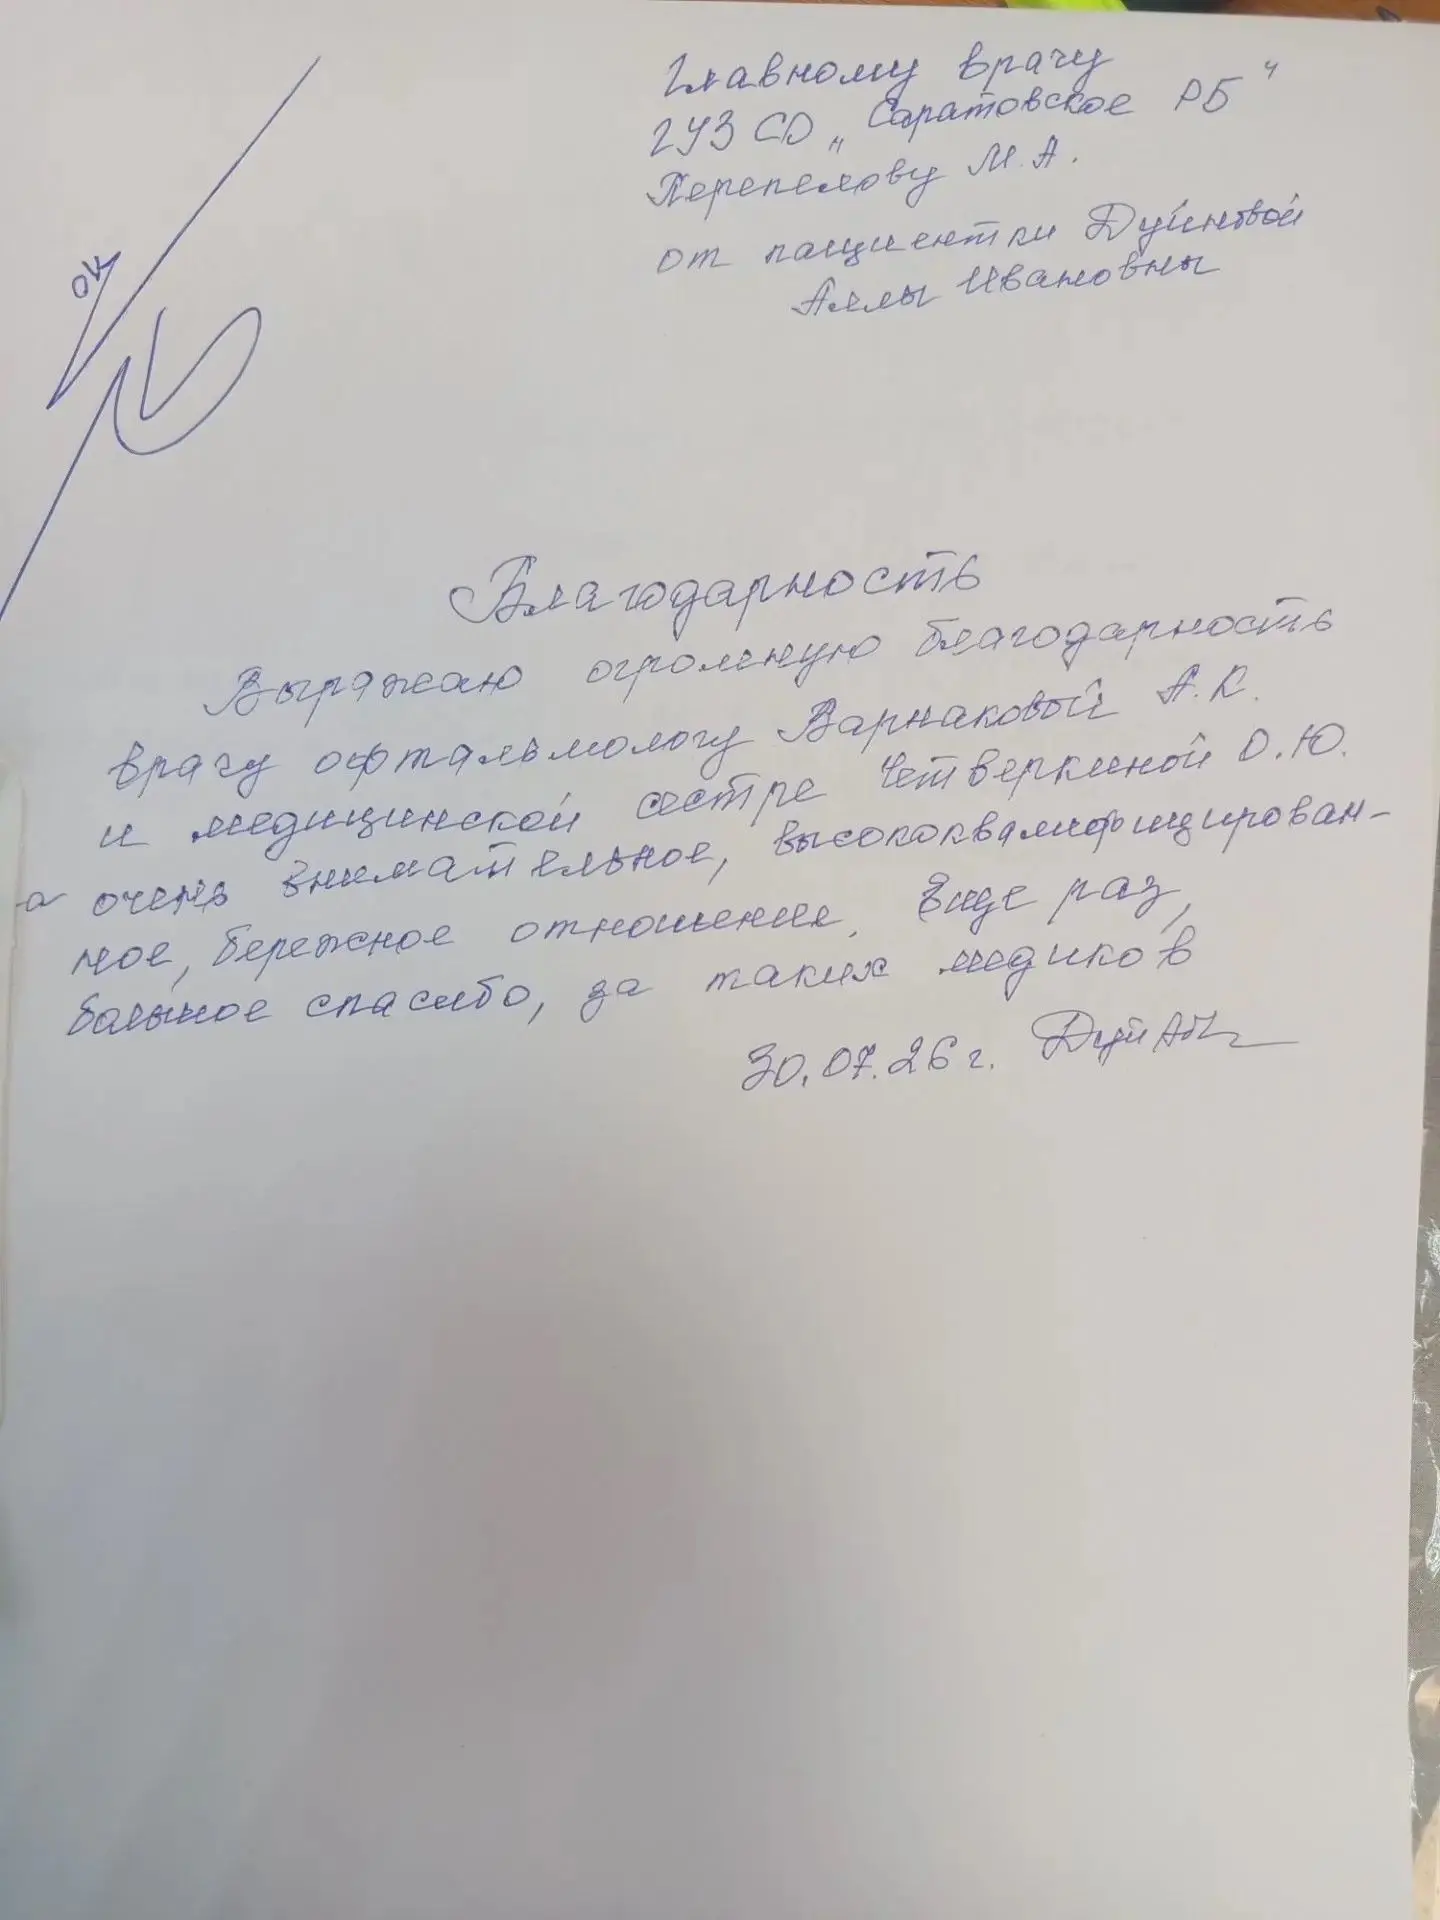 ОК
Главному врачу
ГУЗ СО „Саратовское РБ"
Перепелову М.А.
от пациентки
Аллы Ивановны
Благодарность
Выражаю огромную благодарность
врачу офтальмологу Варнаковой А.К.
и медицинской сестре Четверкиной О.Ю.
за очень внимательное, высококвалифицирован-
ное, бережное отношение. Еще раз,
большое спасибо, за таких медиков
30.07.26 г.